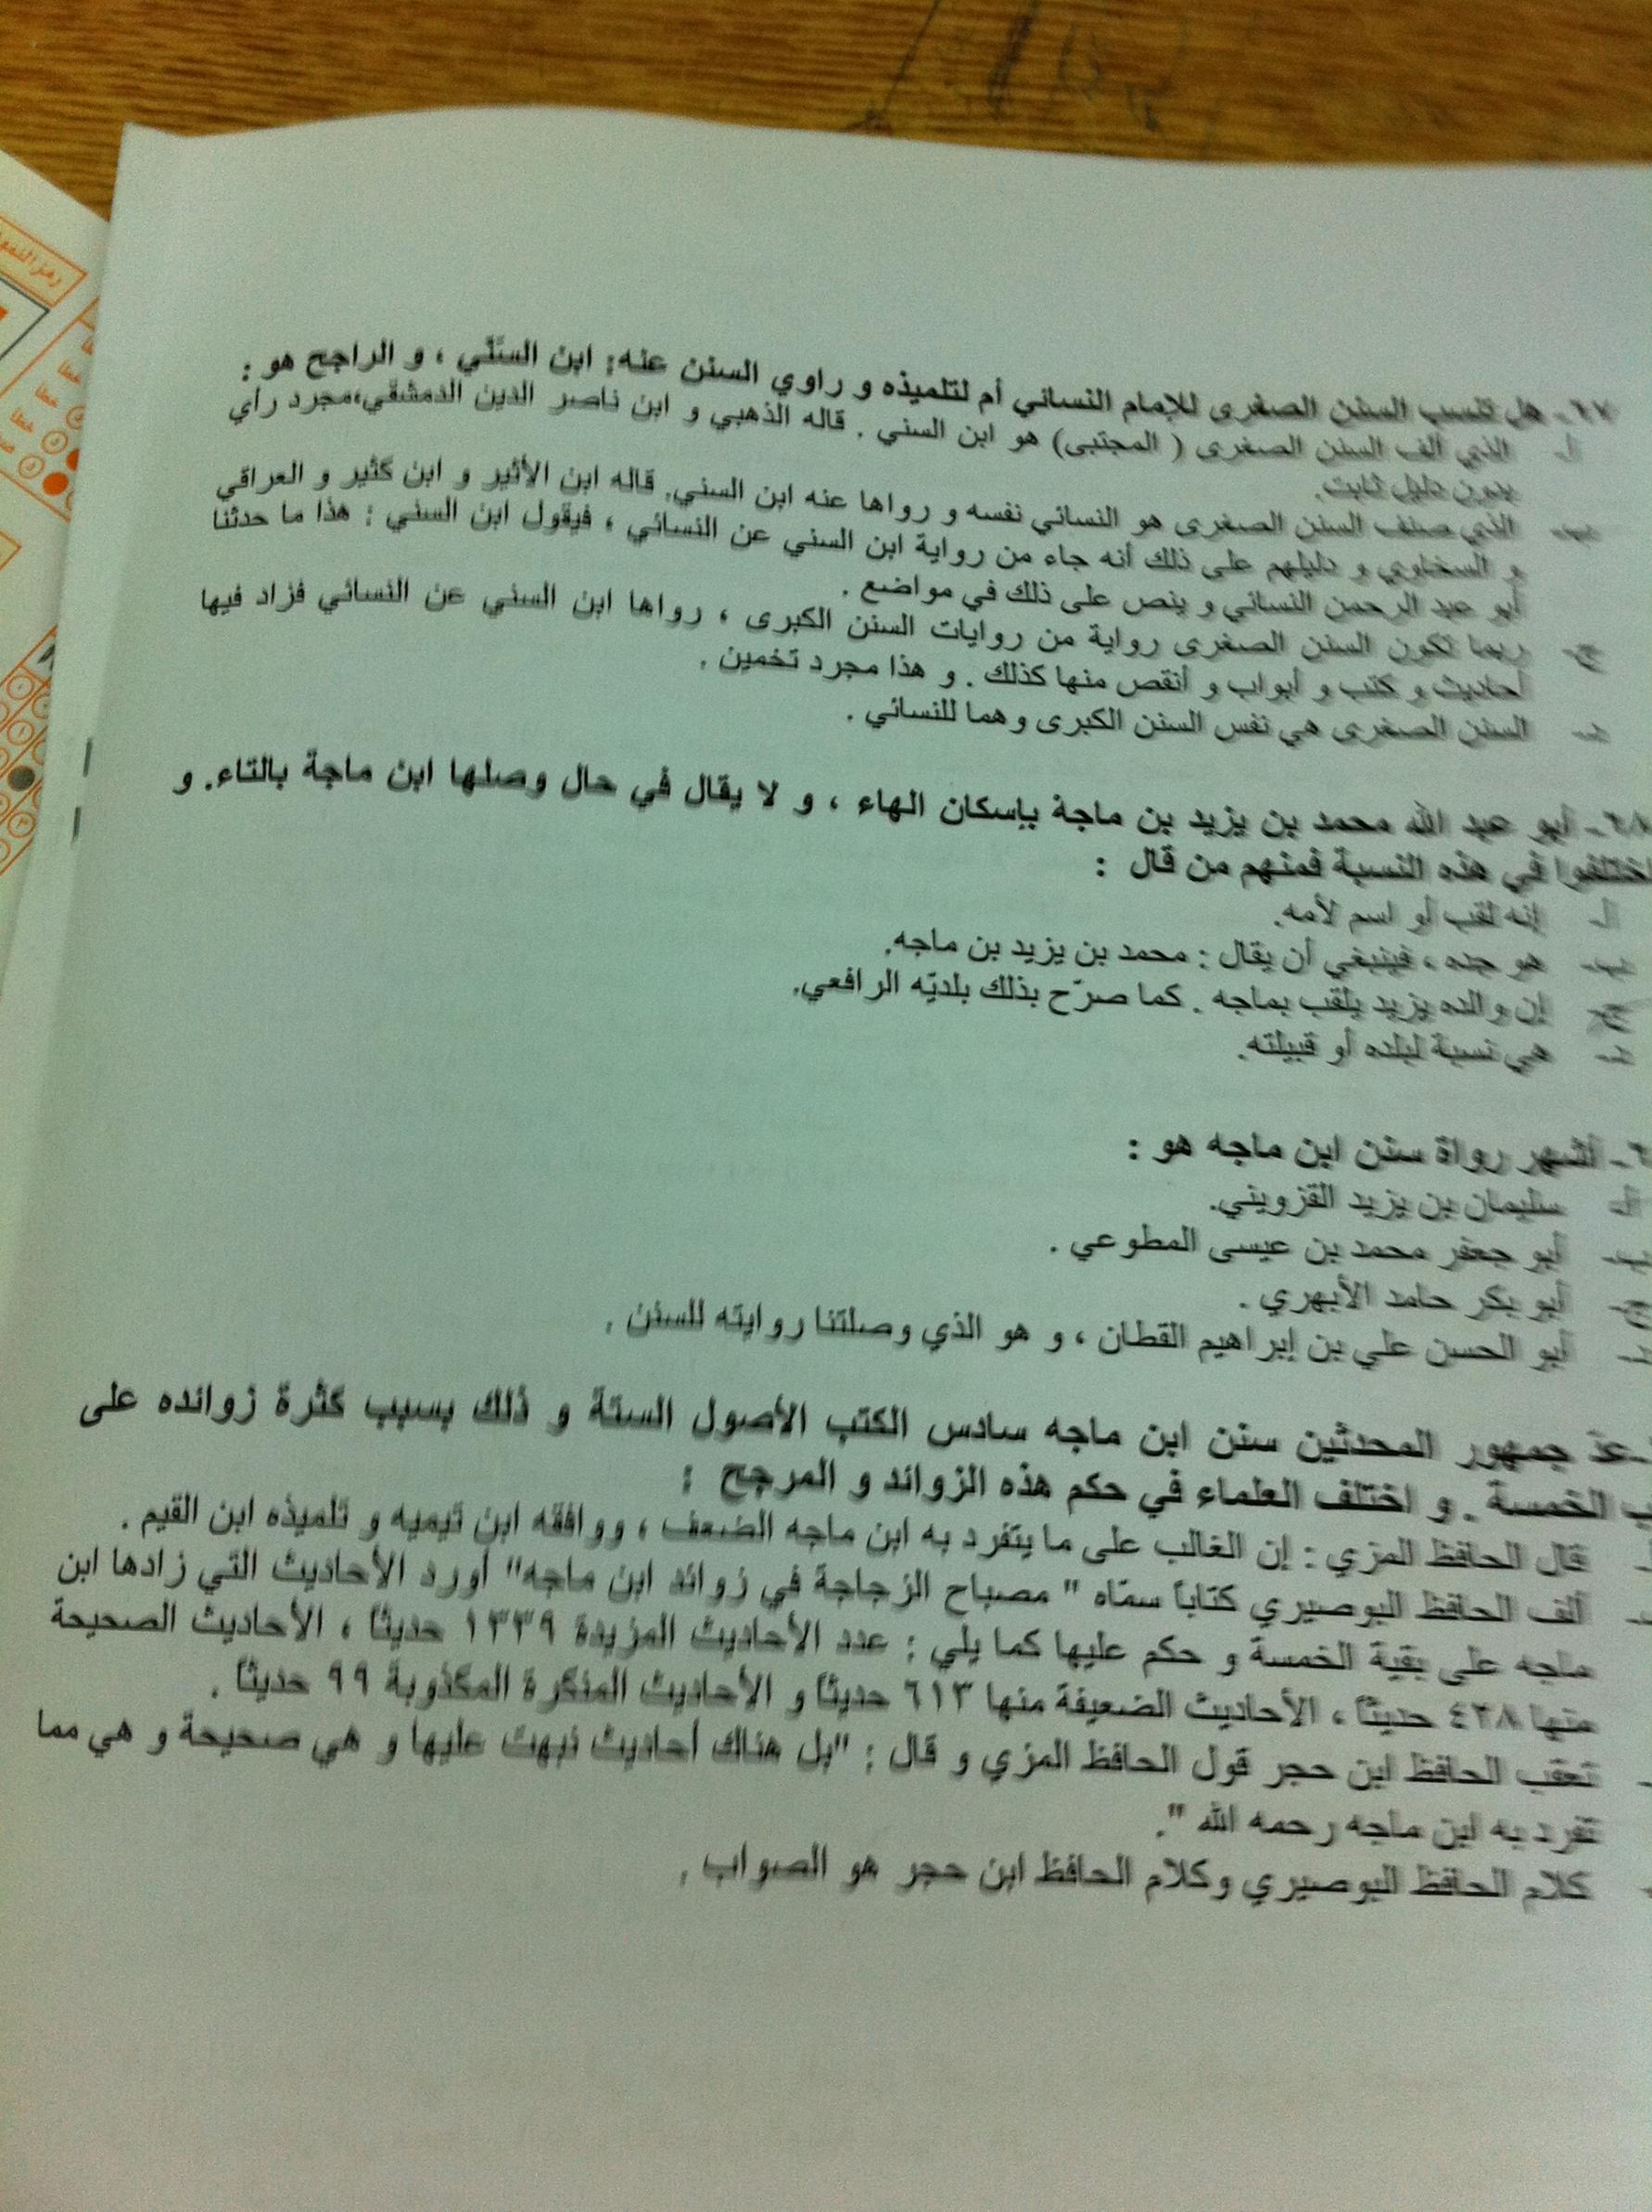 ٢٧- هل تنسب السنن الصغرى للإمام النسائي أم لتلميذه و راوي السنن عنه: ابن السنّي ، و الراجح هو :
أ- الذي ألف السنن الصغرى ( المجتبى) هو ابن السني . قاله الذهبي و ابن ناصر الدين الدمشقي،مجرد رأي
بدون دليل ثابت.
ب- الذي صنف السنن الصغرى هو النسائي نفسه و رواها عنه ابن السني. قاله ابن الأثير و ابن كثير و العراقي
و السخاوي و دليلهم على ذلك أنه جاء من رواية ابن السني عن النسائي ، فيقول ابن السني : هذا ما حدثنا
أبو عبد الرحمن النسائي و ينص على ذلك في مواضع .
ج- ربما تكون السنن الصغرى رواية من روايات السنن الكبرى ، رواها ابن السني عن النسائي فزاد فيها
أحاديث و كتب و أبواب و أنقص منها كذلك . و هذا مجرد تخمين .
د- السنن الصغرى هي نفس السنن الكبرى و هما للنسائي .
٢٨- أبو عبد الله محمد بن يزيد بن ماجة بإسكان الهاء ، و لا يقال في حال وصلها ابن ماجة بالتاء. و
اختلفوا في هذه النسبة فمنهم من قال :
أ- إنه لقب أو اسم لأمه.
ب- هو جده ، فينبغي أن يقال : محمد بن يزيد بن ماجه.
ج- إن والده يزيد يلقب بماجه . كما صرّح بذلك بلديّه الرافعي.
د- هي نسبة لبلده أو قبيلته.
أشهر رواة سنن ابن ماجه هو :
أ- سليمان بن يزيد القزويني.
ب- أبو جعفر محمد بن عيسى المطوعي .
ج- أبو بكر حامد الأبهري .
د- أبو الحسن علي بن إبراهيم القطان ، و هو الذي وصلتنا روايته للسنن .
عدّ جمهور المحدثين سنن ابن ماجه سادس الكتب الأصول الستة و ذلك بسبب كثرة زوائده على
الخمسة . و اختلف العلماء في حكم هذه الزوائد و المرجح :
قال الحافظ المزي : إن الغالب على ما يتفرد به ابن ماجه الضعف ، ووافقه ابن تيميه و تلميذه ابن القيم .
ألف الحافظ البوصيري كتاباً سمّاه " مصباح الزجاجة في زوائد ابن ماجه" أورد الأحاديث التي زادها ابن
ماجه على بقية الخمسة و حكم عليها كما يلي : عدد الأحاديث المزيدة ١٣٣٩ حديثاً ، الأحاديث الصحيحة
منها ٤٢٨ حديثاً ، الأحاديث الضعيفة منها ٦١٣ حديثاً و الأحاديث المنكرة المكذوبة ٩٩ حديثاً .
تعقب الحافظ ابن حجر قول الحافظ المزي و قال : "بل هناك أحاديث نبهت عليها و هي صحيحة و هي مما
تفرد به ابن ماجه رحمه الله ".
كلام الحافظ البوصيري وكلام الحافظ ابن حجر هو الصواب .